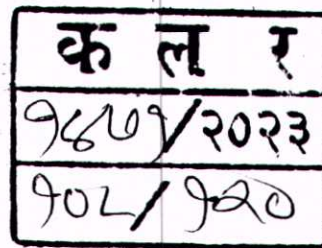 क ल र
१६७१/२०२३
१०८/१२०